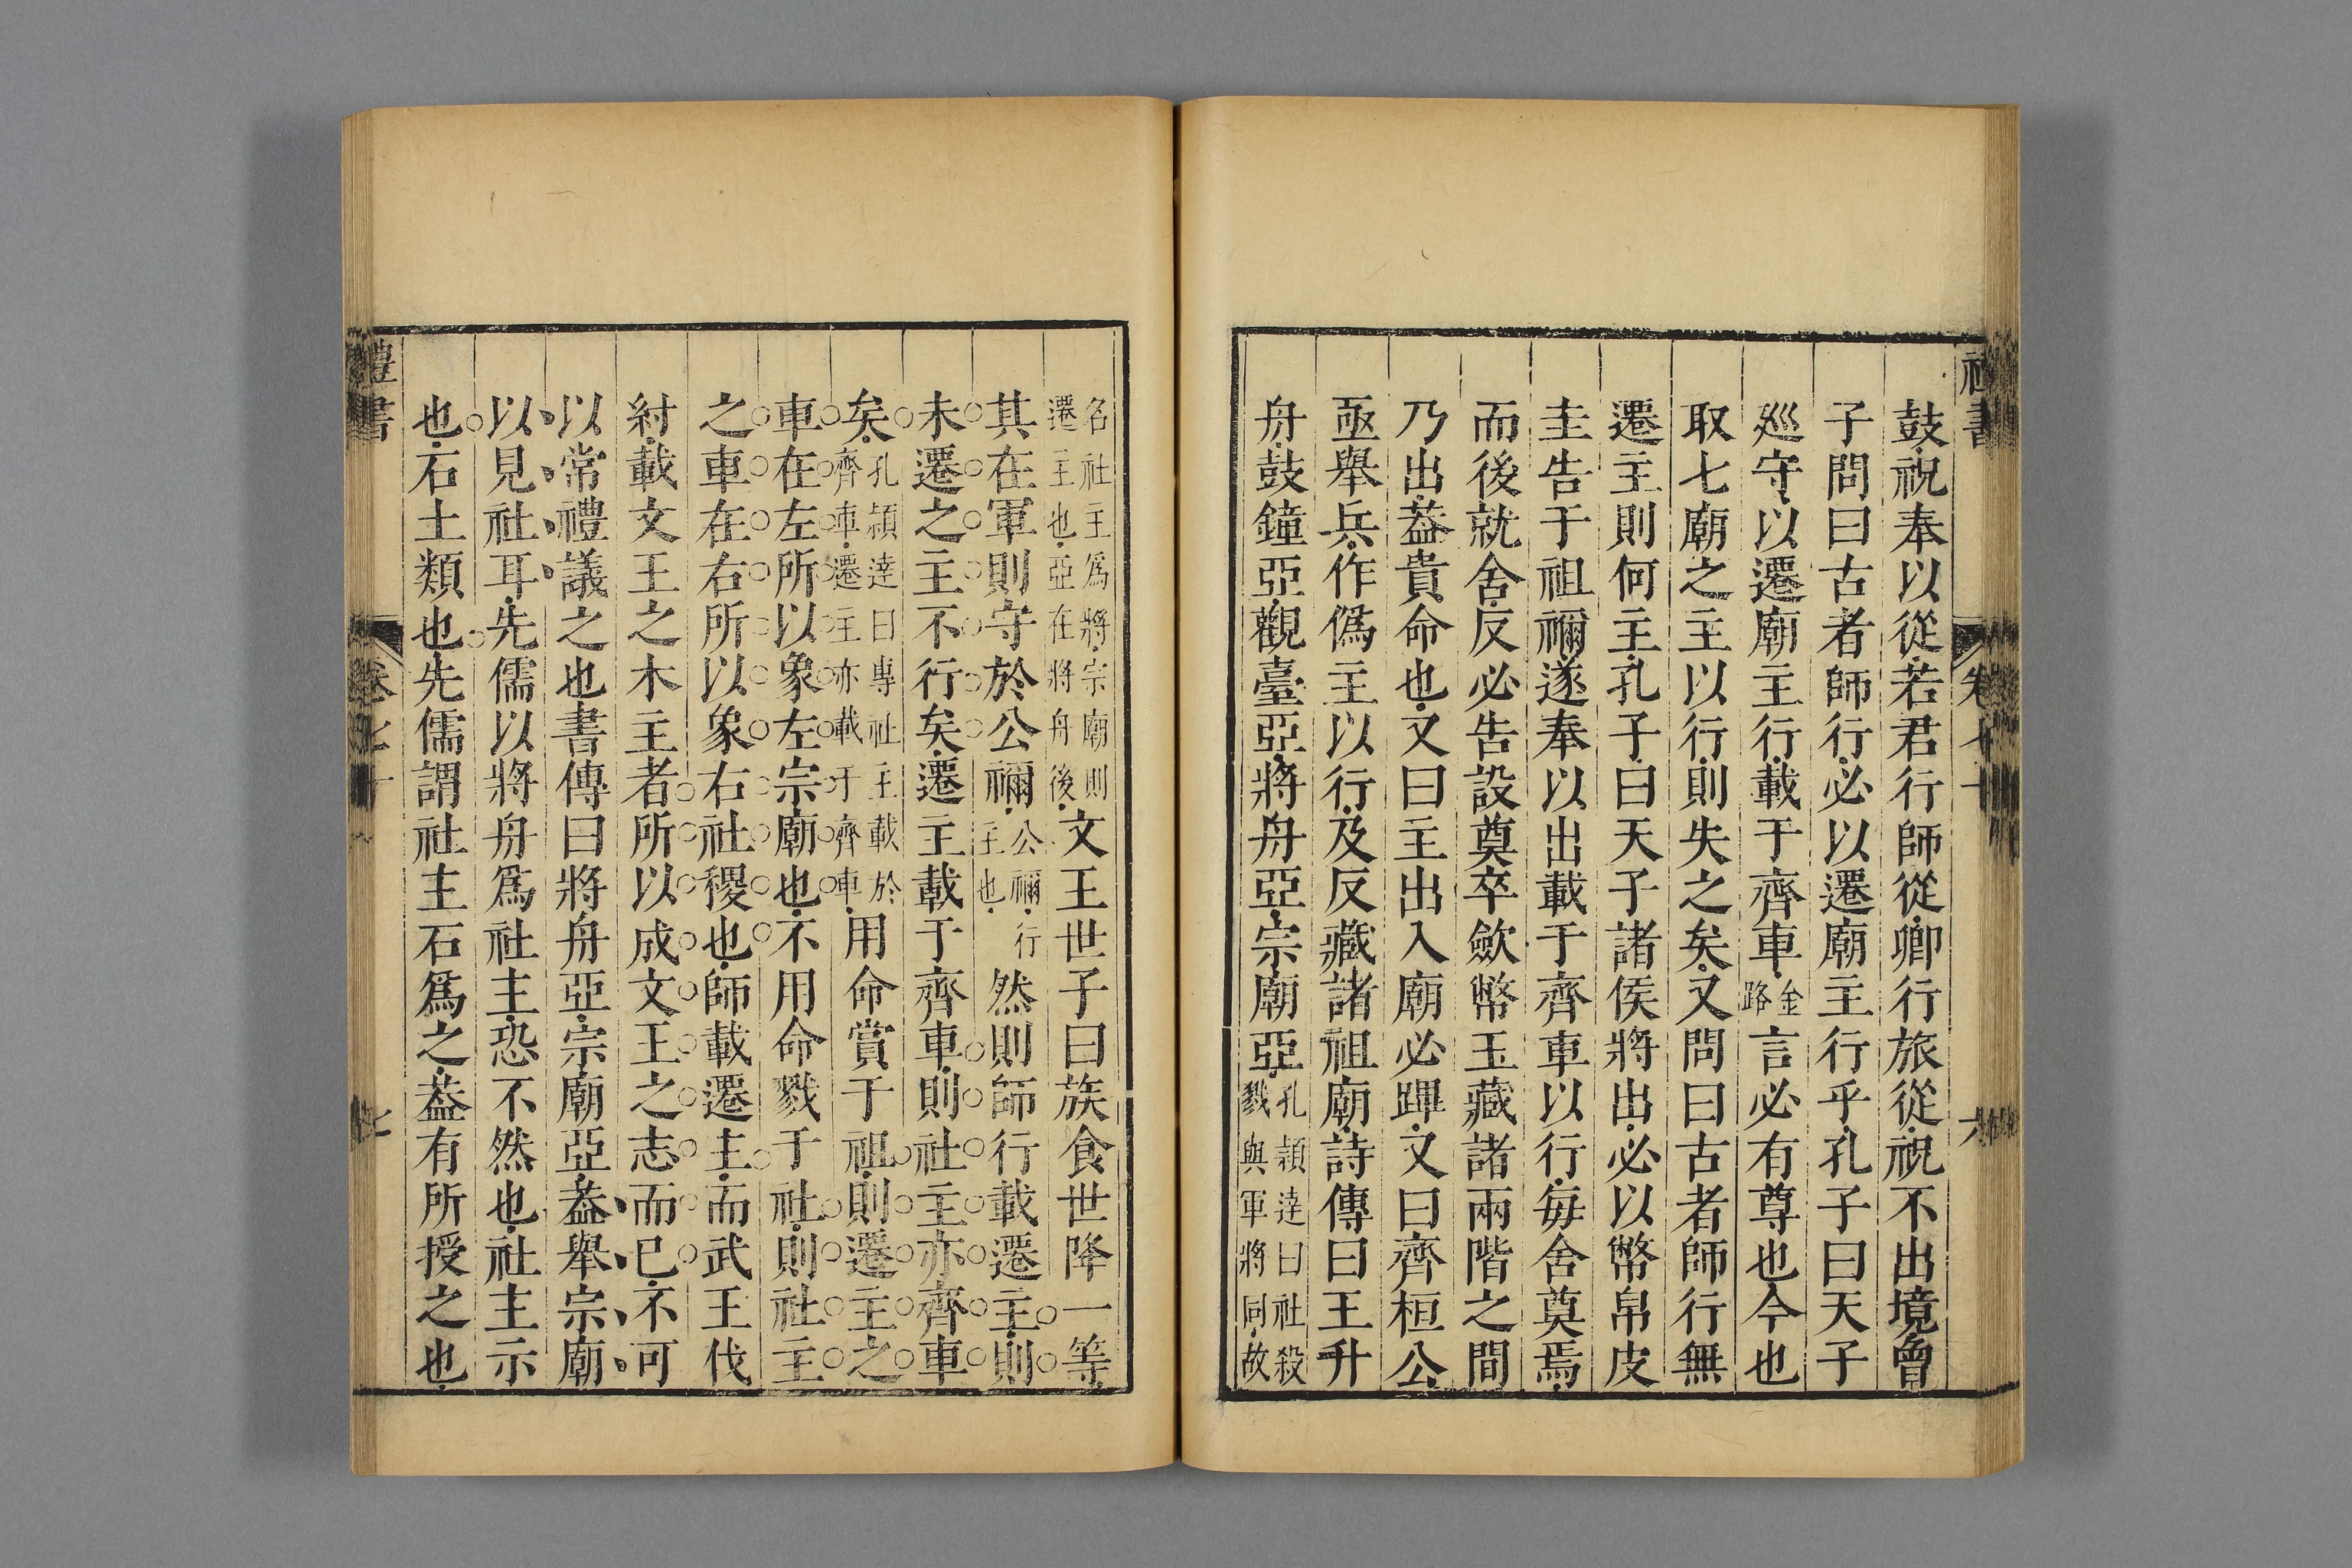 鼓祝奉以從若君行師從卿行旅從祝不出境曾
子問曰古者師行必以遷廟主行乎孔子曰天子
廵守以遷廟主行載于齊車金路言必有尊也今也
取七廟之主以行則失之矣又問曰古者師行無
遷主則何主孔子曰天子諸侯將出必以幣帛皮
圭告于祖禰遂奉以出載于齊車以行每舍奠焉
而後就舍反必告設奠卒斂幣玉藏諸兩階之間
乃出葢貴命也又曰主出出入廟必蹕文曰齊桓公
亟舉兵作僞主以行及反藏諸祖廟詩傳曰王升
舟鼓鐘亞觀臺亞將舟亞宗廟亞孔穎達曰社殺戮與軍將同故
名社主爲將宗廟則遷主也亞在將舟後文王世子曰族食世降一等
其在軍則守於公禰公禰行主也然則師行載遷主則
未遷之主不行矣遷主載于齊車則社主亦齊車
矣孔穎達曰專社主載於齊車遷主亦載于齊車用命賞于祖則遷主之
車在左所以象左宗廟也不用命戮于社則社主
之車在右所以象右社稷也師載遷主而武王伐
紂載文王之木主者所以成文王之志而已不可
以常禮議之也書傳曰將舟亞宗廟亞葢舉宗廟
以見社耳先儒以將舟爲社主恐不然也社主示
也石土類也先儒謂社主石爲之葢有所授之也
禮書
卷七十
七